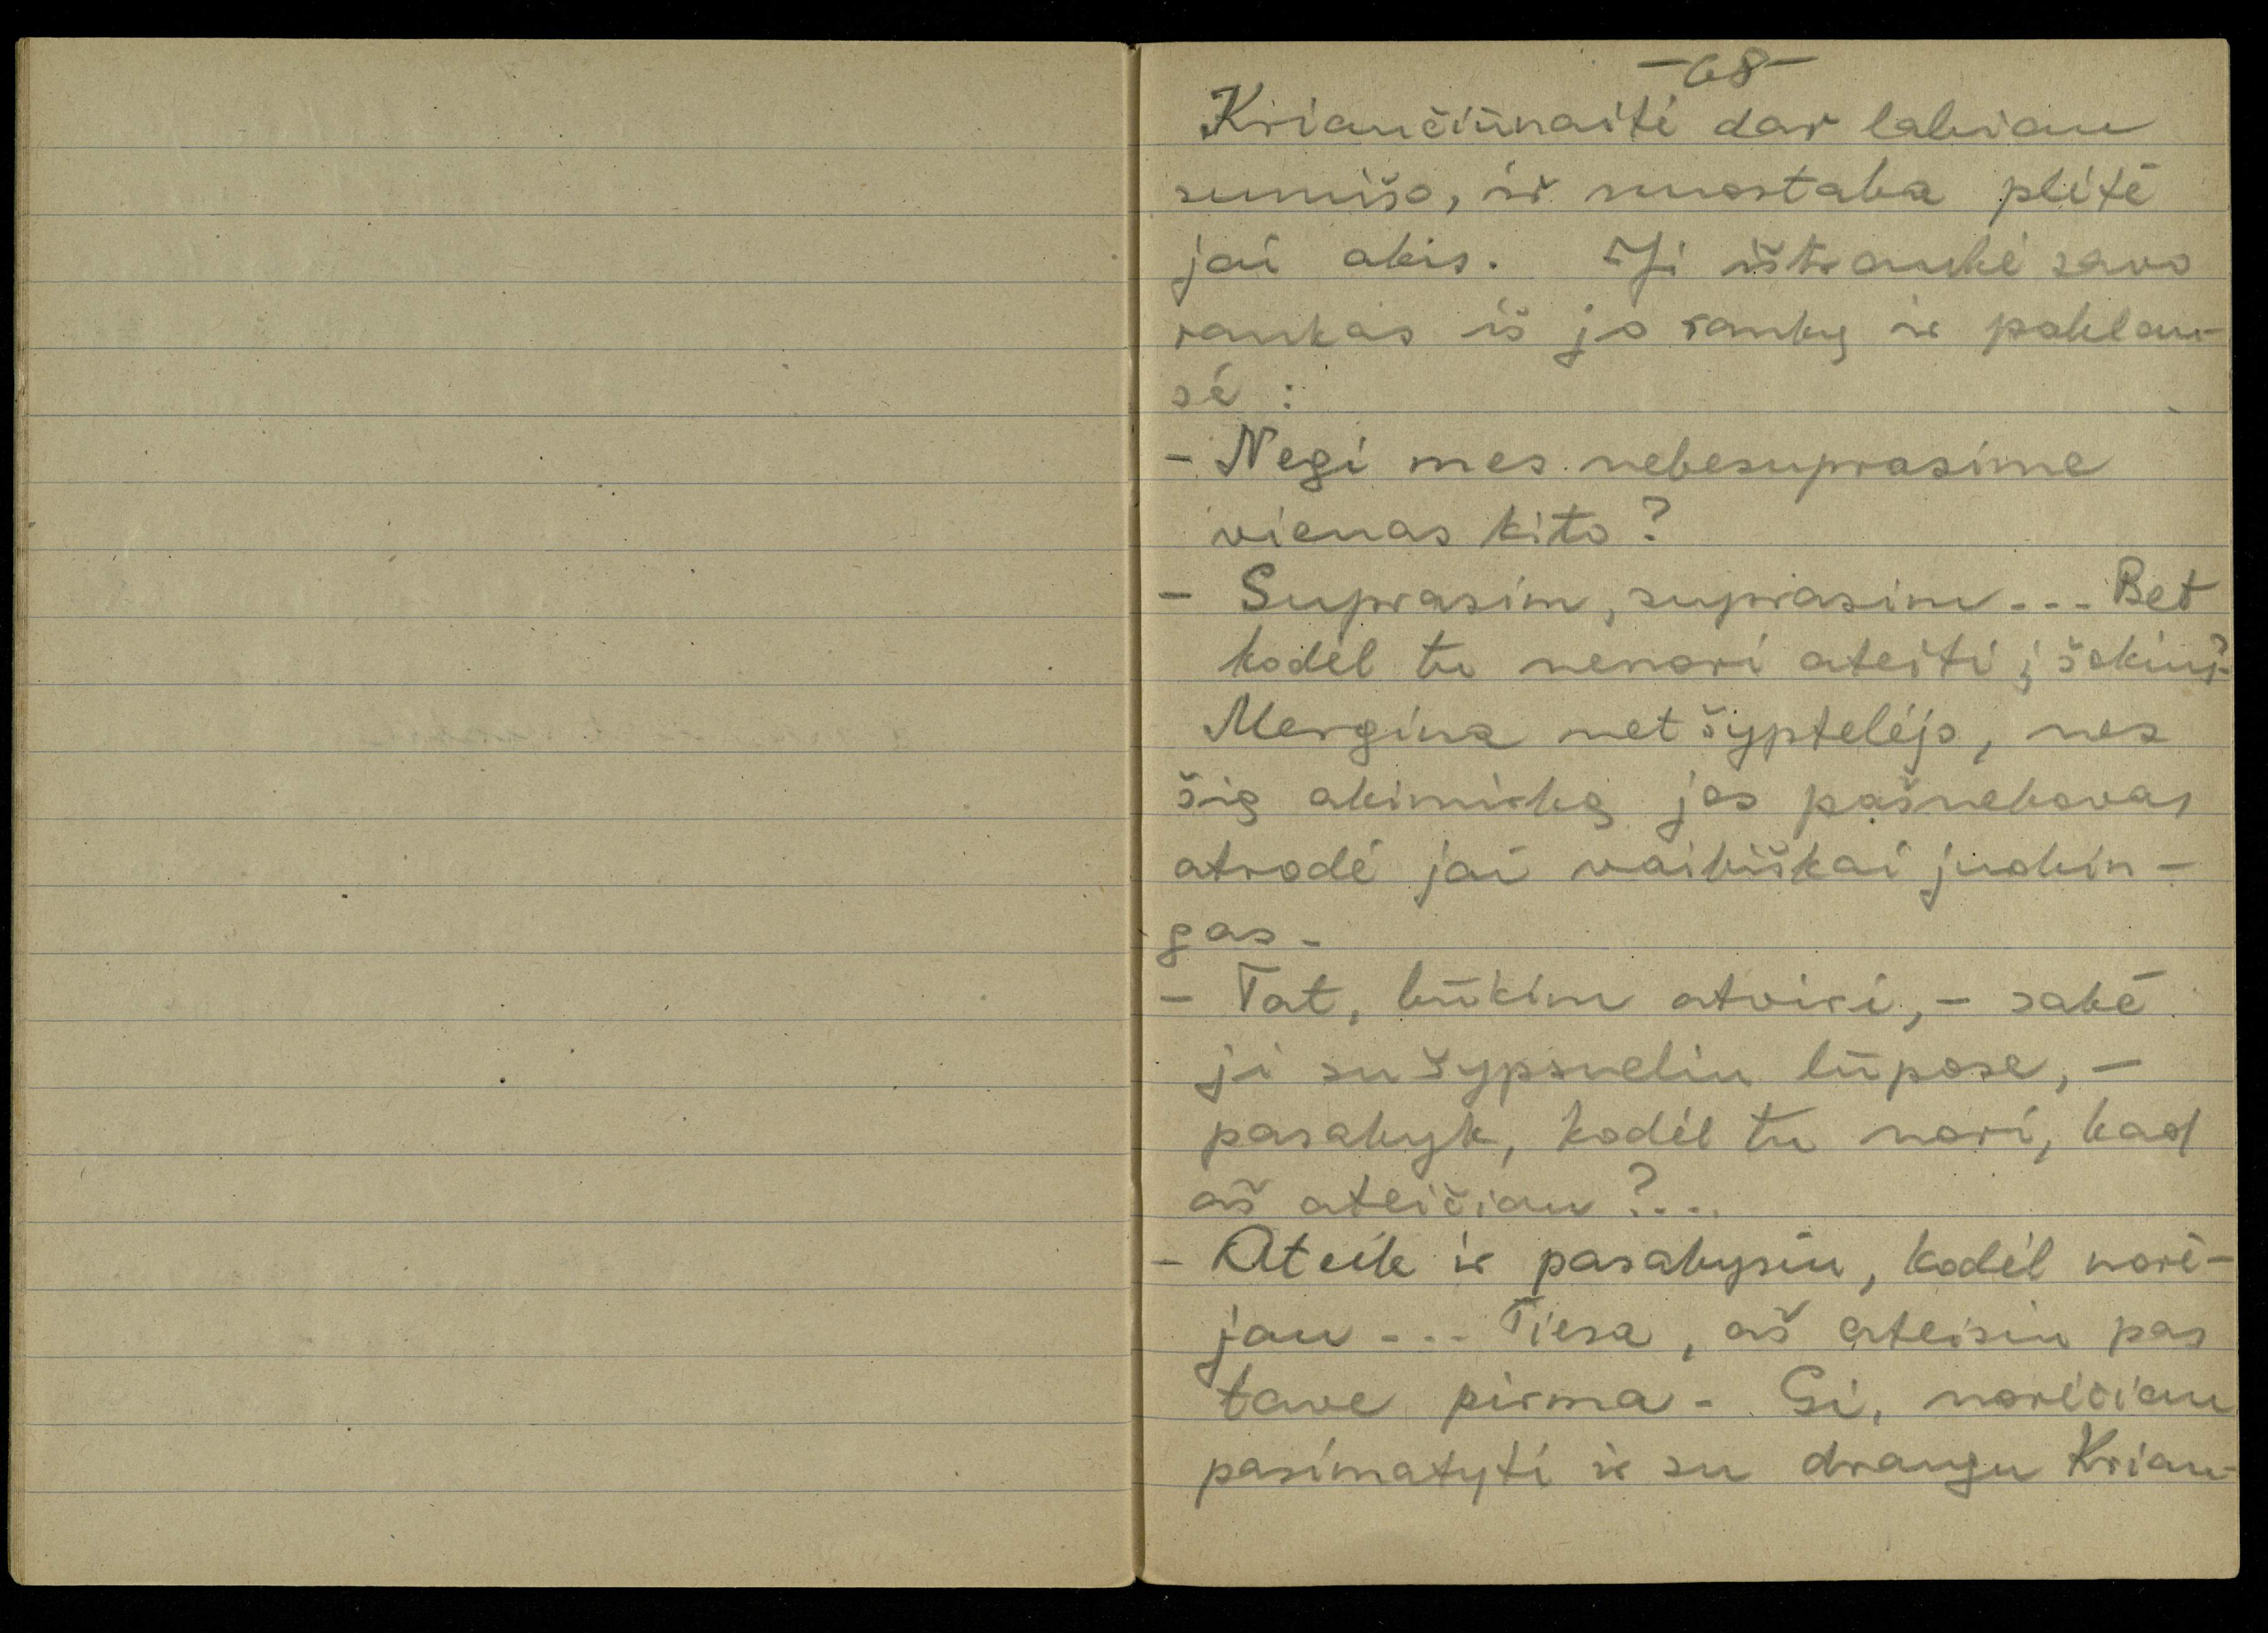 -68-
Kriaučiūnaitė dar labiau
sumišo, ir nuostaba plėtė
jai akis. Ji ištraukė savo
rankas iš jo rankų ir paklau-
sė :
- Negi mes nebesuprasime
vienas kito?
- Suprasim, suprasim... Bet
kodėl tu nenori ateiti į šokius?
Mergina net šyptelėjo, nes
šią akimirką jos pašnekovas
atrodė jai vaikiškai juokin-
gas.
- Tat, būkim atviri, - sakė
ji su šypsneliu lūpose, -
pasakyk, kodėl tu nori, kad
aš ateičiau?...
- Ateik ir pasakysiu, kodėl norė-
jau... Tiesa, aš ateisiu pas
tave pirma. Gi, norėčiau
pasimatyti ir su draugu Kriau-